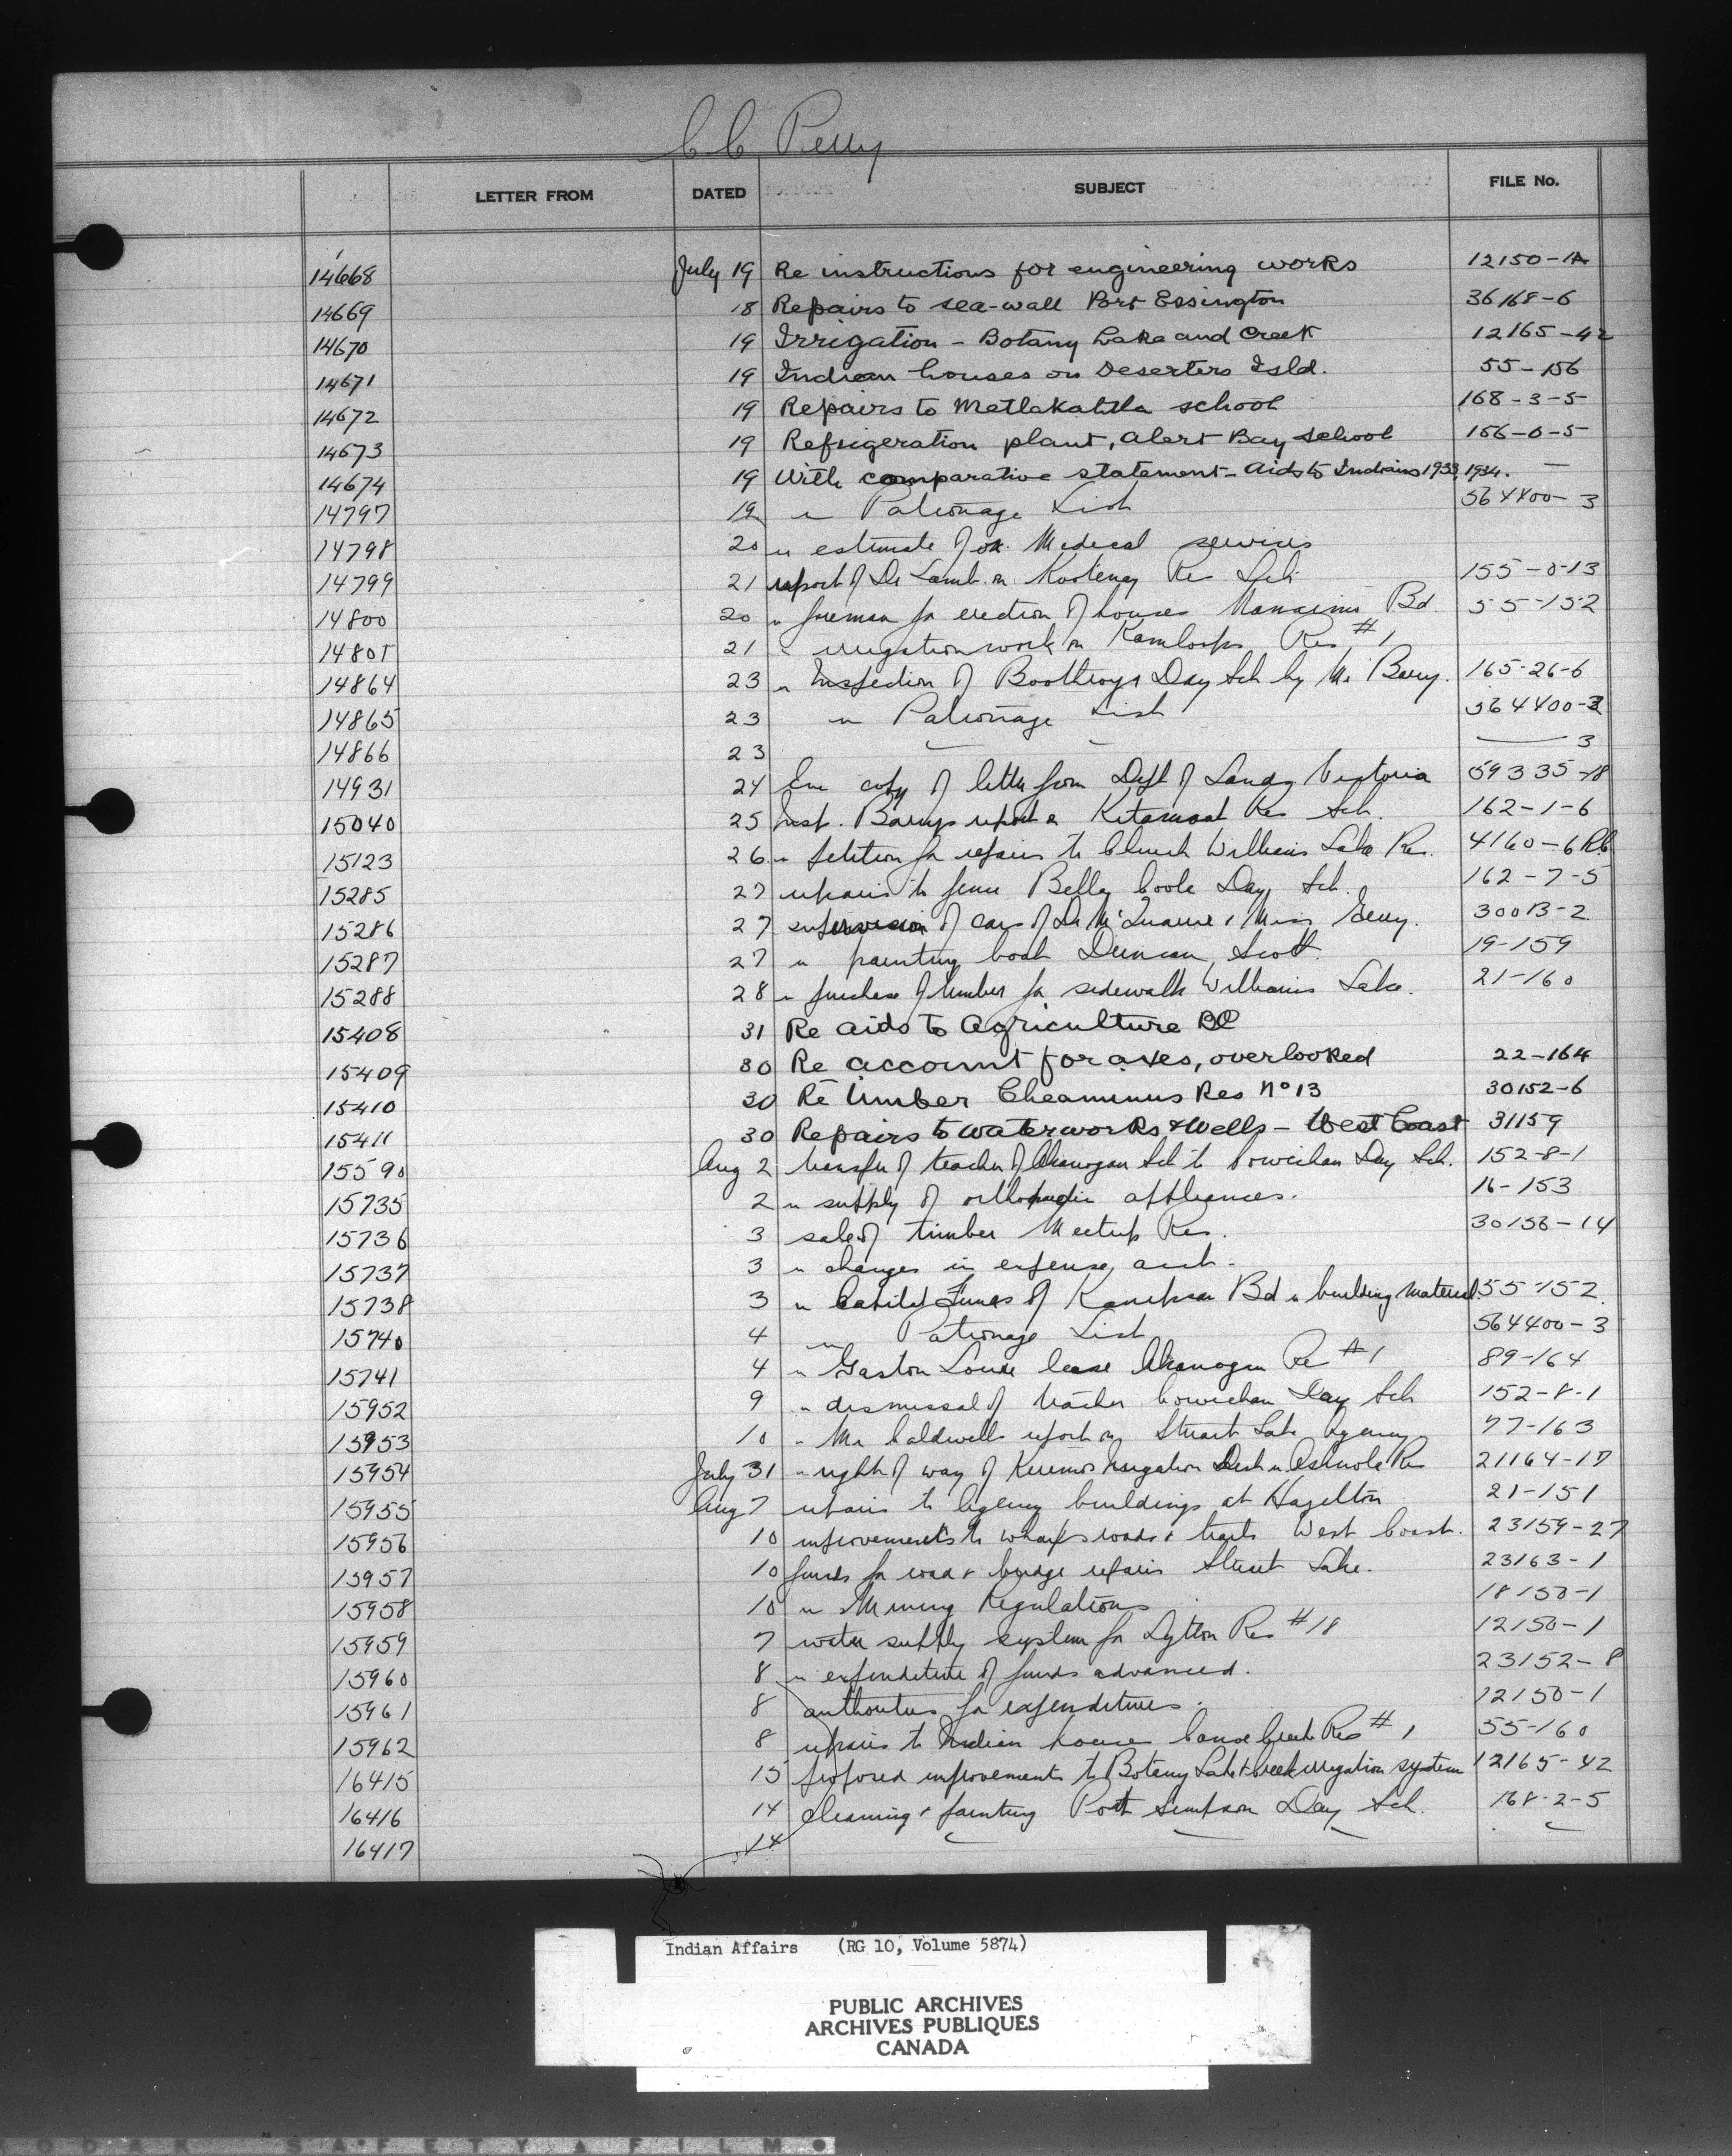 C C Perry
LETTER FROM DATED SUBJECT FILE No.
14668 July 19 Re instructions for engineering works 12150-1A
14669 18 Repairs to sea-wall Port Essington 36168-6
14670 19 Irrigation - Botany Lake and Creek 12165-42
14671 19 Indian houses on Deserters Isld. 55-156
14672 19 Repairs to Metlakahtla school 168-3-5
14673 19 Refrigeration plant, Alert Bay school 156-6-5
14674 19 With comparative statement - Aids to Indians 1933, 1934. —
14797 19 " Patronage List 564400-3
14798 20 " estimate for Medical services
14799 21 report of Dr Lamb on Kootenay Res Sch 155-6-13
14800 20 " foreman for erection of houses Nanaimo Bd. 55-152
14801 21 " irrigation work on Kamloops Res #1
14864 23 " Inspection of Boothroyd Day Sch by Mr Barry. 165-26-6
14865 23 " Patronage List 564400-2
14866 23 — 3
14931 24 Enc copy of letter from Dept of Lands Victoria 59335-18
15040 25 Insp. Barrys report on Kitamaat Res Sch. 162-1-6
15123 26 " petition for repairs to Church Williams Lake Res. 4160-6 RC
15285 27 repairs to fence Bella Coola Day Sch. 162-7-5
15286 27 supervision of cars of Dr & Miss 300B-2
15287 27 " painting boat Duncan Scott 19-159
15288 28 " purchase of lumber for sidewalk Williams Lake. 21-160
15408 31 Re aids to agriculture BC
15409 30 Re account for axes, overlooked 22-164
15410 30 Re timber Cheaminus Res No 13 30152-6
15411 30 Repairs to waterworks & Wells - West Coast 31159
15590 Aug 2 transfer of teacher of Okanogan Sch to Cowichan Day Sch. 152-8-1
15735 2 " supply of orthopedic appliances. 16-153
15736 3 sale of timber Res. 30156-14
15737 3 " changes in expense acct.
15738 3 " Capital Funds of Bd " building material 55-152
15740 4 " Patronage List 564400-3
15741 4 " Gaston lease Okanogan Res #1 89-164
15952 9 " dismissal of teacher Cowichan Day Sch 152-8-1
15953 10 " Mr Caldwell report on Stuart Lake Agency 77-163
15954 July 31 " right of way of Keremeos Irrigation Dist " Ashnola Res 21164-17
15955 Aug 7 repairs to Agency buildings at Hazelton 21-151
15956 10 improvements to wharfs roads & trails West Coast. 23159-27
15957 10 funds for road & bridge repairs Stuart Lake. 23163-1
15958 10 " Mining Regulations 18150-1
15959 7 water supply system for Lytton Res #18 12150-1
15960 8 " expenditure of funds advanced. 23152-8
15961 8 authorities for expenditures. 12150-1
15962 8 repairs to Indian house Canoe Creek Res #1 55-160
16415 15 proposed improvements to Botany Lake & Creek irrigation system 12165-42
16416 14 cleaning & painting Port Simpson Day Sch. 168-2-5
16417 14
Indian Affairs (RG 10, Volume 5874)
PUBLIC ARCHIVES
ARCHIVES PUBLIQUES
CANADA
KODAK SAFETY FILM